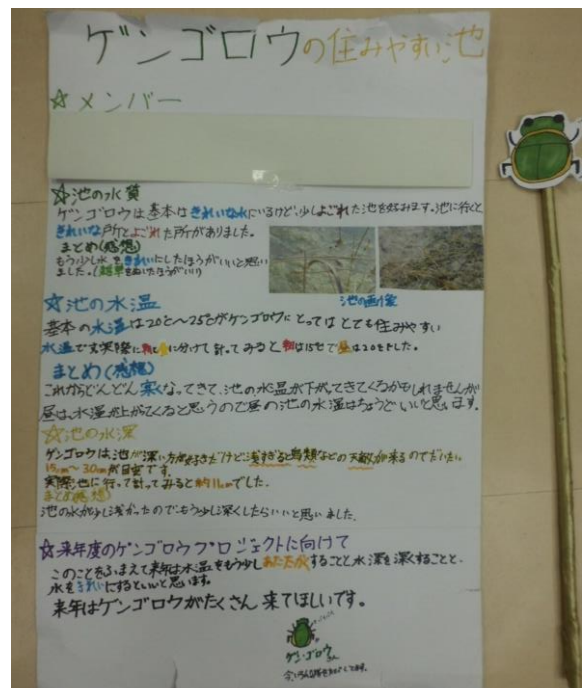 ゲンゴロウの住みやすい池
☆メンバー
☆池の水質
ゲンゴロウは基本はきれいな水にいるけど、少しよごれた池を好みます。池に行くと
きれいな所とよごれた所がありました。
まとめ(感想)
もう少し水をきれいにしたほうがいいと思い
ました。(雑草をぬいたほうがいい)
池の画像
☆池の水温
基本の水温は20℃〜25℃がゲンゴロウにとってはとても住みやすい
水温です。実際に朝と昼に分けて計ってみると朝は15℃で昼は20℃でした。
まとめ(感想)
これからどんどん寒くなってきて、池の水温が下がってきてくるかもしれませんが
昼は、水温が上がってくると思うので昼の池の水温はちょうどいいと思います。
☆池の水深
ゲンゴロウは池が深い方が好きだけど、浅すぎると鳥類などの天敵が来るのでだいたい
15cm〜30cmが目安です。
実際池に行って計ってみると約11cmでした。
まとめ(感想)
池の水が少し浅かったのでもう少し深くしたらいいと思いました。
☆来年度のゲンゴロウプロジェクトに向けて
このことをふまえて来年は水温をもう少しあたたかくすることと水深を深くすることと、
水をきれいにするといいと思います。
来年はゲンゴロウがたくさん来てほしいです。
ゲンゴロウ